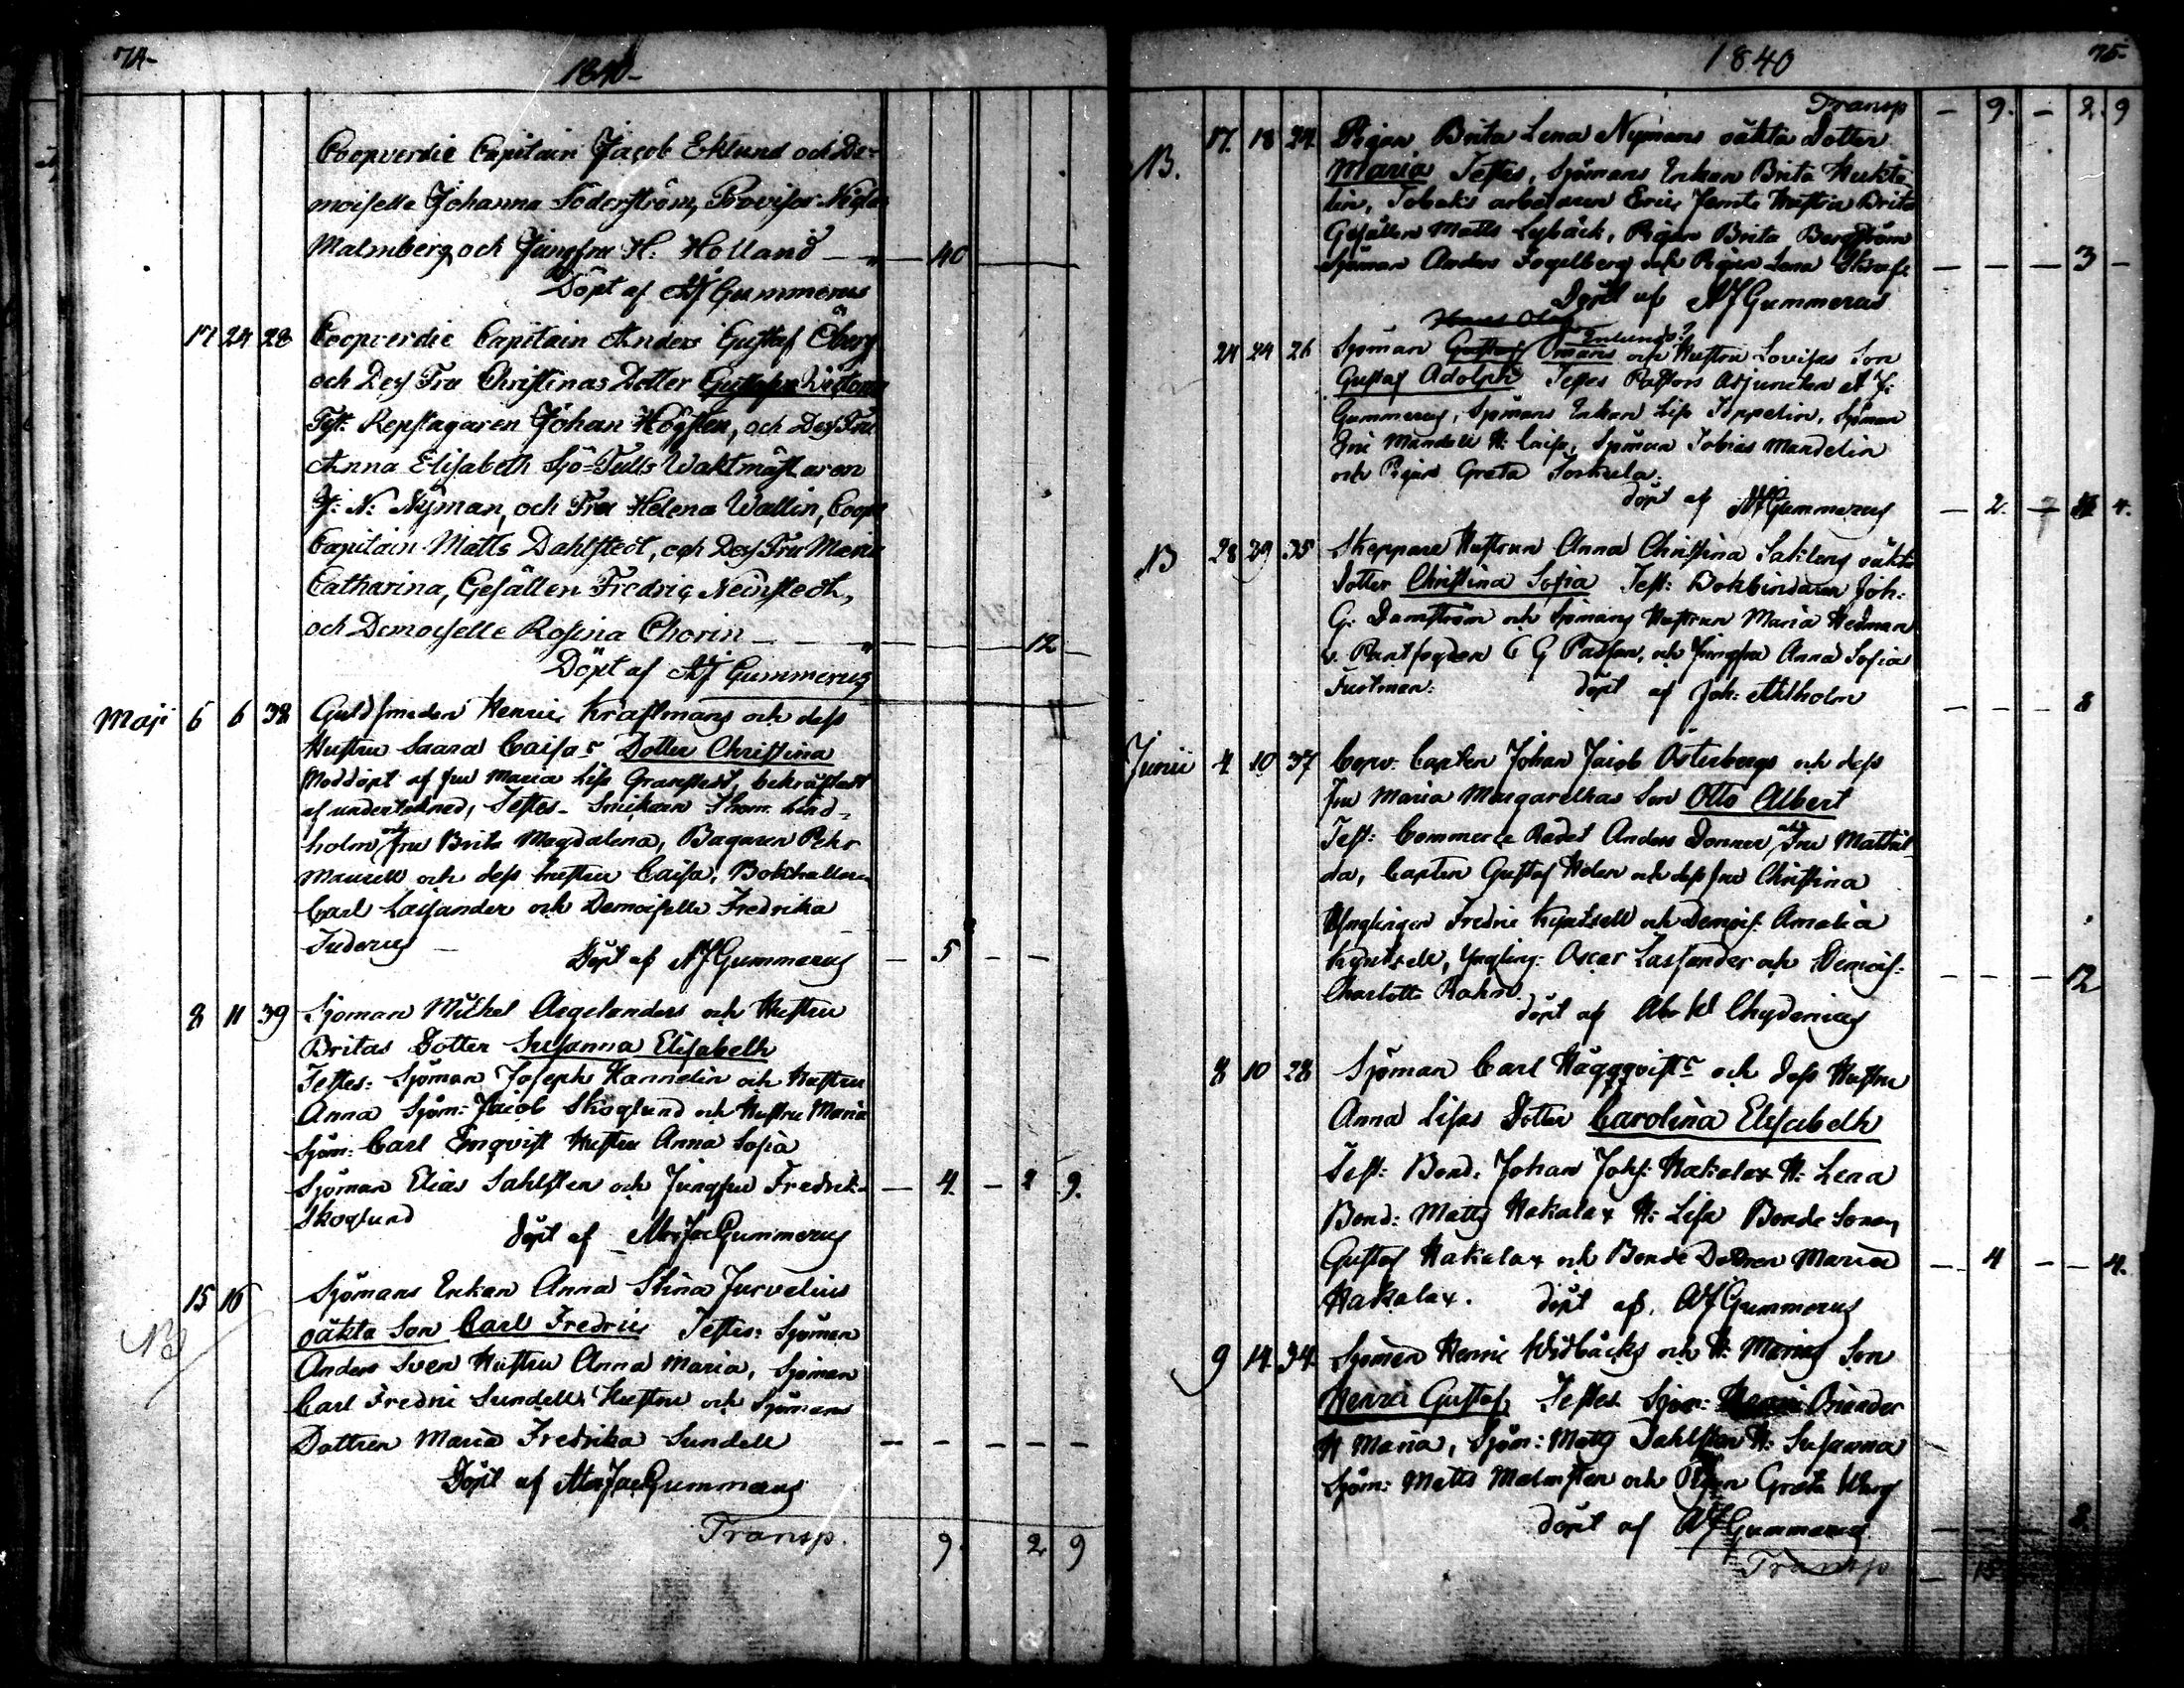 74-
1840-
Coopverdie Capitain Jacob Eklund och De-
moiselle Johanna Söderström, Provisor
Malmberg och Jungfru H: Holland — " — 40
Döpt af AJ Gummerus
17 24 28 Coopverdie Capitain Anders Gustaf Öberg
och Dess Fru Christinas Dotter
Test: Repslagaren Johan Högsten, och Dess Fru
Anna Elisabeth Sjö=Tulls Waktmästaren
J: N: Nyman, och Fru Helena Wallin, Coopv
Capitain Matts Dahlstedt, och Dess Fru Maria
Catharina, Gesällen Fredric Neinstedh,
och Demoiselle Rosina Chorin — " — 12 —
Döpt af AJ Gummerus
Maji 6 6 38 Guldsmeden Henric Kraftmans och dess
Hustru Saara Caisas Dotter Christina
Nöddöpt af fru Maria Lisa Granstedt, bekräftadt
af undertecknad, Testes- Snikaren Thom: Lind-
holm och fru Brita Magdalena, Bagaren Pehr
Maurell och dess hustru Caisa, Bokhållaren
Carl Lassander och Demoiselle Fredrika
Juderus —
Döpt af AJ Gummerus — 5 — —
8 11 39 Sjöman Mickel Aegelanders och Hustru
Britas Dotter Susanna Elisabeth
Testes: Sjöman Joseph Hannelin och Hustru
Anna Sjöm: Jacob Skoglund och Hustru Maria
Sjöm: Carl Enqvist Hustru Anna Sofia
Sjöman Elias Sahlsten och Jungfru Fredrik- — 4. — 2 9.
Skoglund
döpt af Abr Jac Gummerus
15 16 Sjömans Enkan Anna Stina Jurvelius
NB oäkta Son Carl Fredric Testes: Sjöman
Anders Sven Hustru Anna Maria, Sjöman
Carl Fredric Sundell, Hustru och Sjömans
Dottren Maria Fredrika Sundell — — — — —
Döpt af Abr Jac Gummerus
Transp. 9. 2 9
1840
75.
Transp — 9. — 2. 9
NB. 17. 18 24. Pigan Brita Lena Nymans oäkta Dotter
Maria Testes, Sjömans Enkan Brita
lin, Tobaks arbetaren Eric Hustru Brita
Gesällen Matts Lybäck, Pigan Brita Bergström
Sjöman Anders Fogelberg och Pigan Lena — — — 3 —
Döpt af AJ Gummerus
Enlunds?
24 24 26 Sjöman Gustaf och Hustru Lovisas Son
Gustaf Adolph Testes Pastors Adjuncten A J:
Gummerus, Sjömans Enkan Lisa Toppelin, Sjöman
Eric Mandell H: Caisa, Sjöman Tobias Mandelin
och Pigan Greta Torkula.
döpt af AJ Gummerus — 2. 4.
NB 28 29 35 Skeppare Hustrun Anna Christina oäkta
Dotter Christina Sofia Test: Bokbindaren Joh:
G: Damström och Sjömans Hustrun Maria Hedman
C G och Jungfru Anna Sofia
döpt af Joh: Ahlholm — — — 8
Junii 4 10 37 Copv: Capten Johan Jacob Österbergs och dess
fru Maria Margarethas Son Otto Albert
Test: Commerce Rådet Anders Donner och Fru Mathil-
da, Capten Gustaf Holen och dess fru Christina
Ynglingen Fredric Kyntzell och Demois: Amalia
Kyntzell, Yngling: Oscar Lassander och Demois: — — — 12
Charlotta Rahn.
döpt af Abr W Chydenius
8 10 28 Sjöman Carl Häggqvists och dess Hustru
Anna Lisas Dotter Carolina Elisabeth
Test: Bond: Johan Johs: Hakalax H: Lena
Bond: Matts Hakalax H: Lisa Bonde Sonen
Gustaf Hakalax och Bonde Dottren Maria — 4 — — 4.
Hakalax. döpt af. AJ Gummerus
9 14. 34. Sjöman Henric Widbäcks och H: Marias Son
Henric Gustaf, Testes Sjöm: Brander
H Maria, Sjöm: Matts Dahlsten H: Susanna
Sjöm: Matts Malmsten och Pigan Greta
döpt af AJ Gummerus — 2
Transp — 15